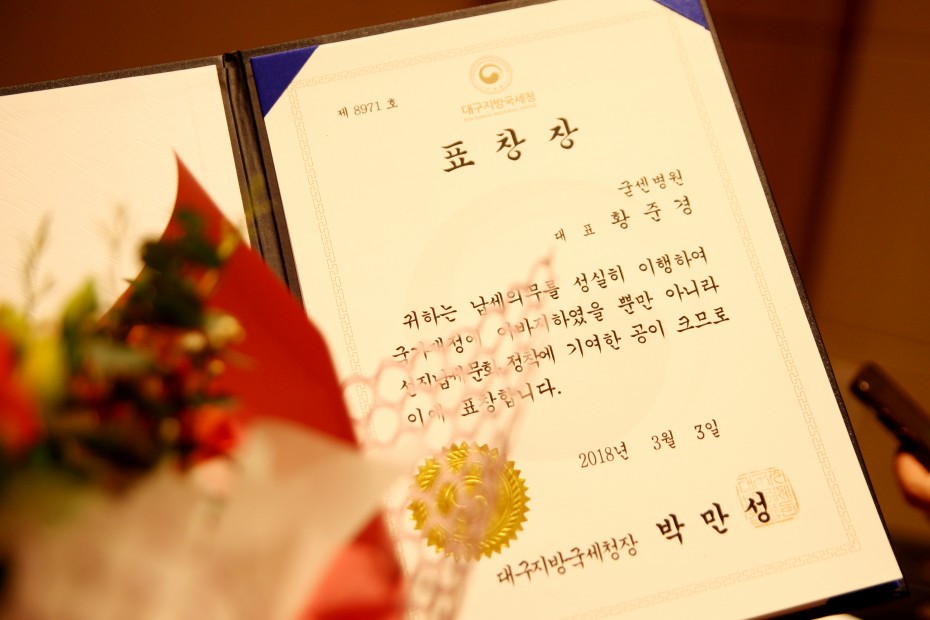 제 8971 호
대구지방국세청
표 창 장
굳센병원
대 표 황 준 경
귀하는 납세의무를 성실히 이행하여
국가재정에 이바지하였을 뿐만 아니라
선진납세문화 정착에 기여한 공이 크므로
이에 표창합니다.
2018년 3월 3일
대구지방국세청장 박 만 성